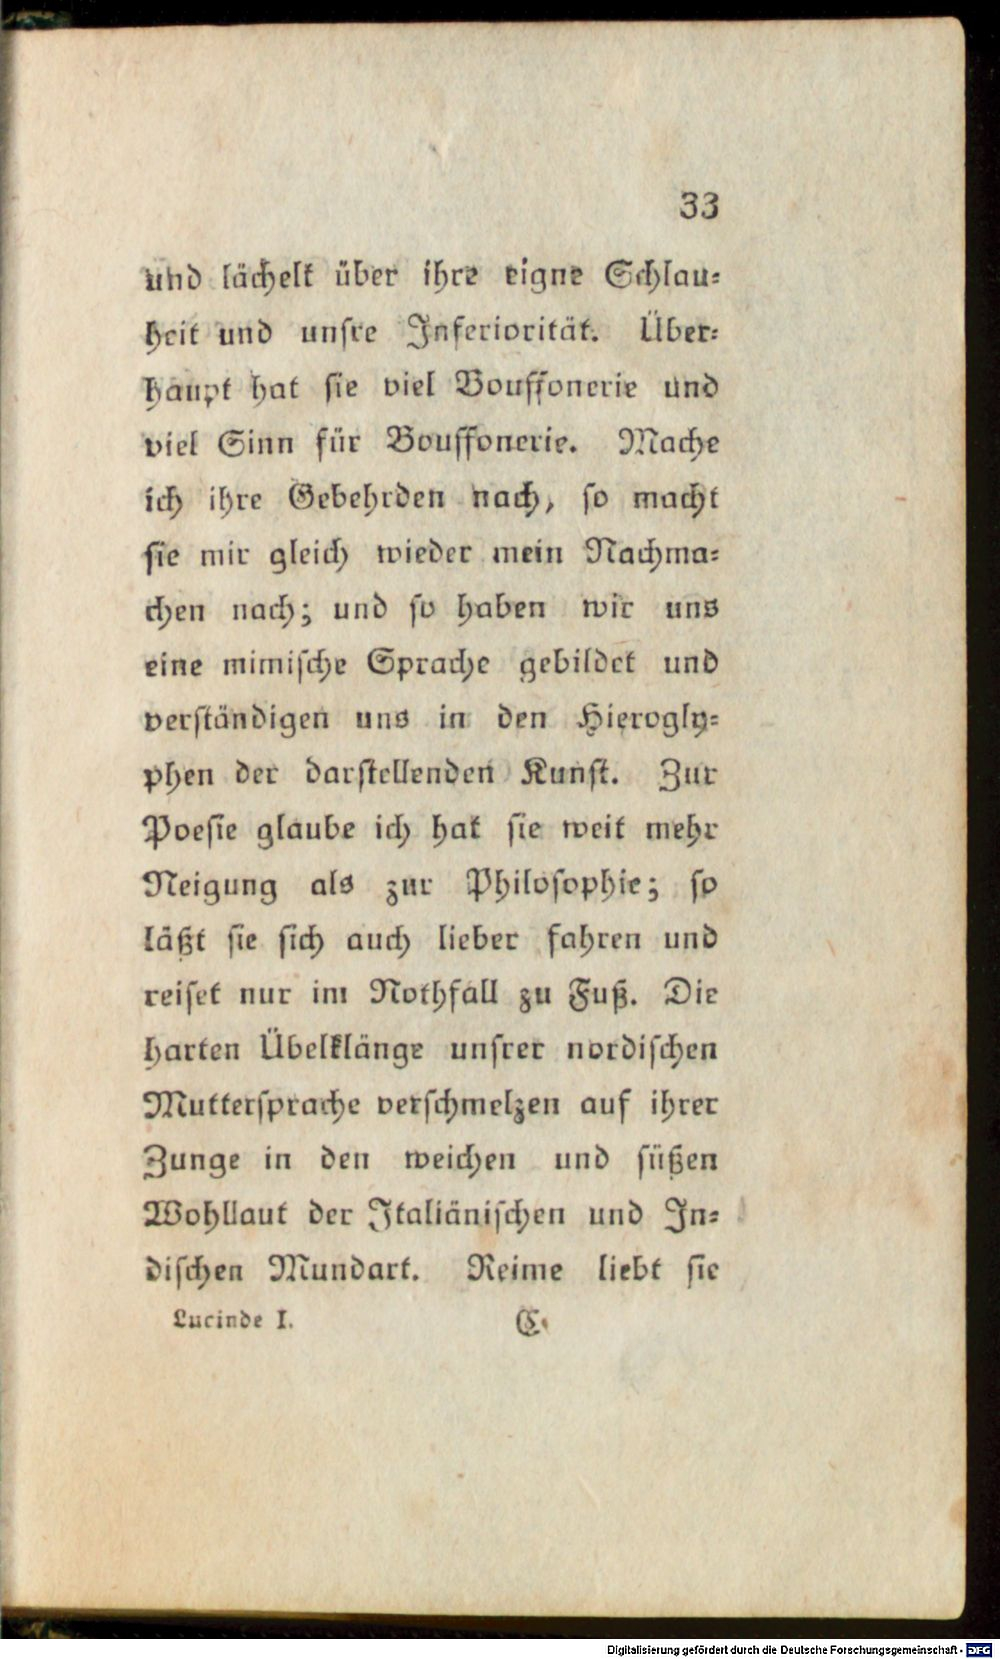 33
und lächelt über ihre eigne Schlau⸗
heit und unsre Inferiorität. Über⸗
haupt hat sie viel Bouffonerie und
viel Sinn für Bouffonerie. Mache
ich ihre Gebehrden nach, so macht
sie mir gleich wieder mein Nachma⸗
chen nach; und so haben wir uns
eine mimische Sprache gebildet und
verständigen uns in den Hierogly⸗
phen der darstellenden Kunst. Zur
Poesie glaube ich hat sie weit mehr
Neigung als zur Philosophie; so
läßt sie sich auch lieber fahren und
reiset nur im Nothfall zu Fuß. Die
harten Übelklänge unsrer nordischen
Muttersprache verschmelzen auf ihrer
Zunge in den weichen und süßen
Wohllaut der Italiänischen und In⸗
dischen Mundart. Reime liebt sie
Lucinde I. C
Digitalisierung gefördert durch die Deutsche Forschungsgemeinschaft - DFG